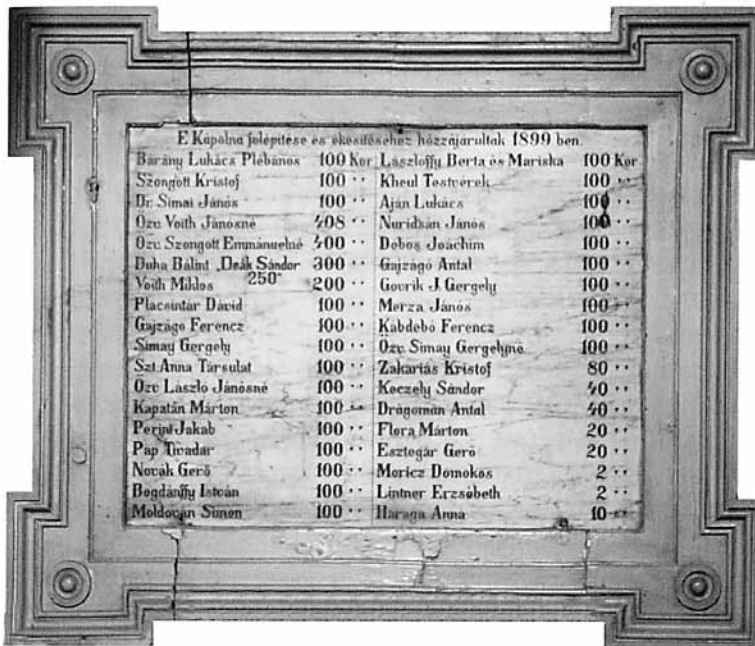 E Kápolna felépitése és ékesitéséhez hozzájárultak 1899 ben.
Bárány Lukács Plébános 100 Kor
Szongott Kristof 100 ··
Dr. Simai János 100 ··
Özv. Voith Jánosné 408 ··
Özv. Szongott Emmánuelné 400 ··
Duha Bálint 300 ··
Deák Sándor 250
Voith Miklos 200 ··
Placsintár Dávid 100 ··
Gajzágo Ferencz 100 ··
Simay Gergely 100 ··
Szt Anna Társulat 100 ··
Özv László Jánosné 100 ··
Kapatán Márton 100 ··
Perint Jakab 100 ··
Pap Tivadar 100 ··
Novák Gerő 100 ··
Bogdánffy István 100 ··
Moldován Simon 100 ··
Lászloffy Berta és Mariska 100 Kor
Kheul Testvérek 100 ··
Aján Lukács 100 ··
Nuridsán János 100 ··
Dobos Joáchim 100 ··
Gajzágó Antal 100 ··
Govrik J. Gergely 100 ··
Merza János 100 ··
Kábdebó Ferencz 100 ··
Özv. Simay Gergelyné 100 ··
Zakariás Kristof 80 ··
Keczely Sándor 40 ··
Drágomán Antal 40 ··
Flora Márton 20 ··
Esztegár Gerő 20 ··
Moricz Domokos 2 ··
Lintner Erzsébeth 2 ··
Haraga Anna 10 ··